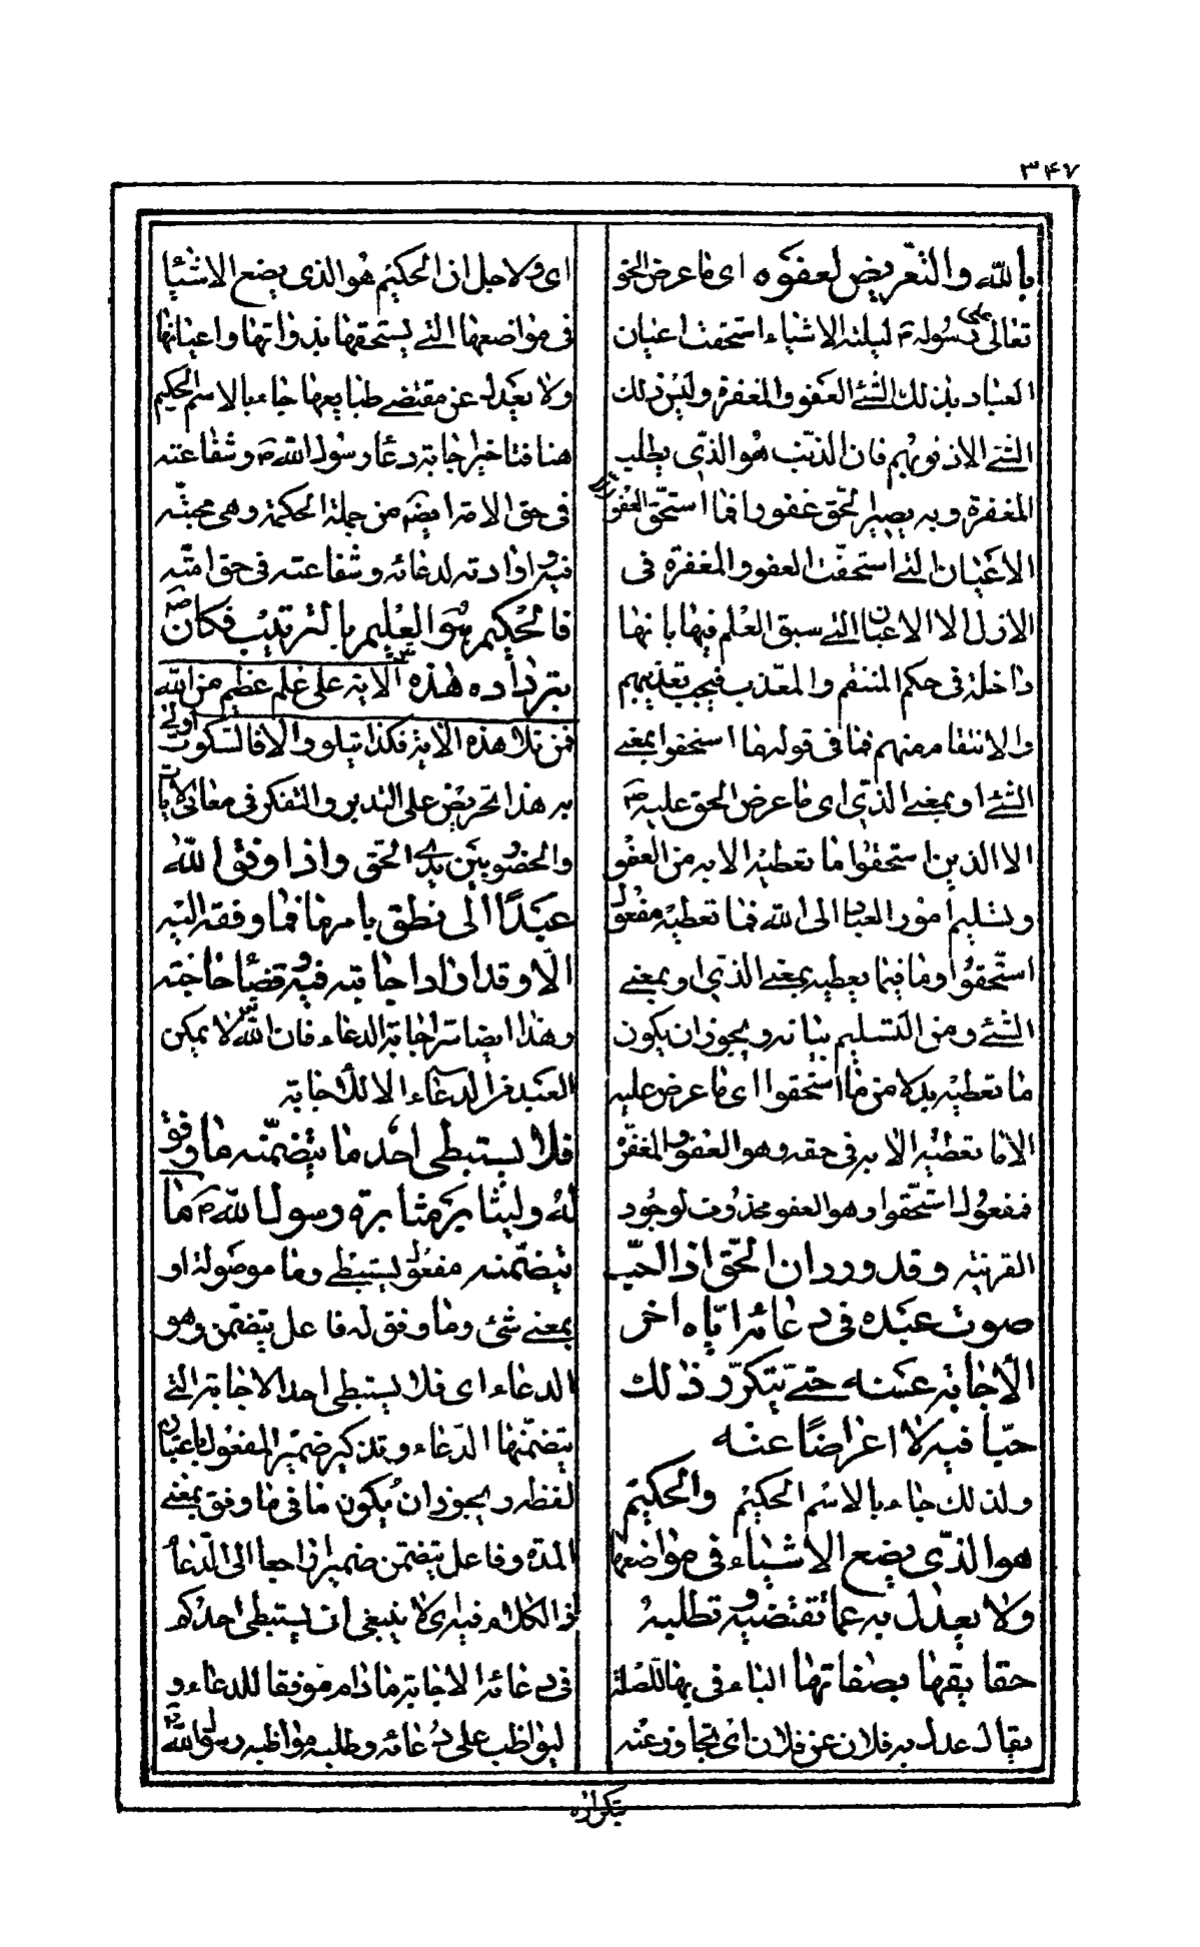 ۳۴۷
بالله والتعريض لعفوه اى ما عرض الحق
تعالى على رسوله ص ليلته الاشياء استحقت اعيان
العباد بذلك الشئ العفو والمغفرة وليس ذلك
الشئ الا ذنوبهم فان الذنب هو الذى يطلب
المغفرة وبه يصير الحق غفورا فما استحق العفو
الاعيان التى استحقت العفو والمغفرة فى
الازل لا الاعيان التى سبق العلم فيها بانها
داخلة فى حكم المنتقم والمعذب فيجب تعذيبهم
والانتقام منهم فما فى قوله ما استحقوا بمعنى
الشئ او بمعنى الذى اى ما عرض الحق عليه ص
الا الذين استحقوا ما تعطيه الاية من العفو
وتسليم امور العباد الى الله فما تعطيه مفعول
استحقوا وما فيما يعطيه بمعنى الذى او بمعنى
الشئ ومن التسليم بيانه ويجوز ان يكون
ما تعطيه بدلا من ما استحقوا اى ما عرض عليه
الا ما تعطيه الاية فى حقه وهو العفو والمغفرة
فمفعول استحقوا وهو العفو محذوف لوجود
القرينة وقد ورد ان الحق اذا احب
صوت عبده فى دعائه اياه اخر
الاجابة عنه حتى يتكرر ذلك
حبا فيه لا اعراضا عنه
ولذلك جاء بالاسم الحكيم والحكيم
هو الذى يضع الاشياء فى مواضعها
ولا يعدل به عما تقتضيه وتطلبه
حقايقها بصفاتها الباء فى بها للصلة
يقال عدل به فلان عن فلان اى تجاوز عنه
اى ولاجل ان الحكيم هو الذى يضع الاشياء
فى مواضعها التى يستحقها بذواتها واعيانها
ولا يعدل عن مقتضى طبايعها جاء بالاسم الحكيم
هنا فتاخير اجابة دعاء رسول الله ص وشفاعته
فى حق الامة ايضا من جملة الحكمة وهى محبته
فيه وارادته لدعائه وشفاعته فى حق امته
فالحكيم هو العليم بالترتيب فكان ص
بترداده هذه الاية على علم عظيم من الله
فمن تلا هذه الاية فكذا يتلو والا فالسكوت اولى
به هذا تحريض على التدبر والتفكر فى معانى الايات
والحضور بين يدى الحق واذا وفق الله
عبدا الى نطق بامر ما فما وفقه اليه
الا وقد اراد اجابته فيه وقضاء حاجته
وهذا ايضا سر اجابة الدعاء فان الله لا يمكن
العبد من الدعاء الا للاجابة
فلا يستبطى احد ما يتضمنه ما وفق
له وليثابر مثابرة رسول الله ص ما
يتضمنه مفعول يستبطى وما موصولة او
بمعنى شئ وما وفق له فاعل يتضمن وهو
الدعاء اى فلا يستبطى احد الاجابة التى
يتضمنها الدعاء وتذكير ضمير المفعول باعتبار
لفظه ويجوز ان يكون ما فى ما وفق بمعنى
المدة وفاعل يتضمن ضميرا راجعا الى الدعاء
فى الكلام فيه اى لا ينبغى ان يستبطى احدكم
فى دعائه الاجابة ما دام موفقا للدعاء و
ليواظب على دعائه وطلبه مواظبة رسول الله ص